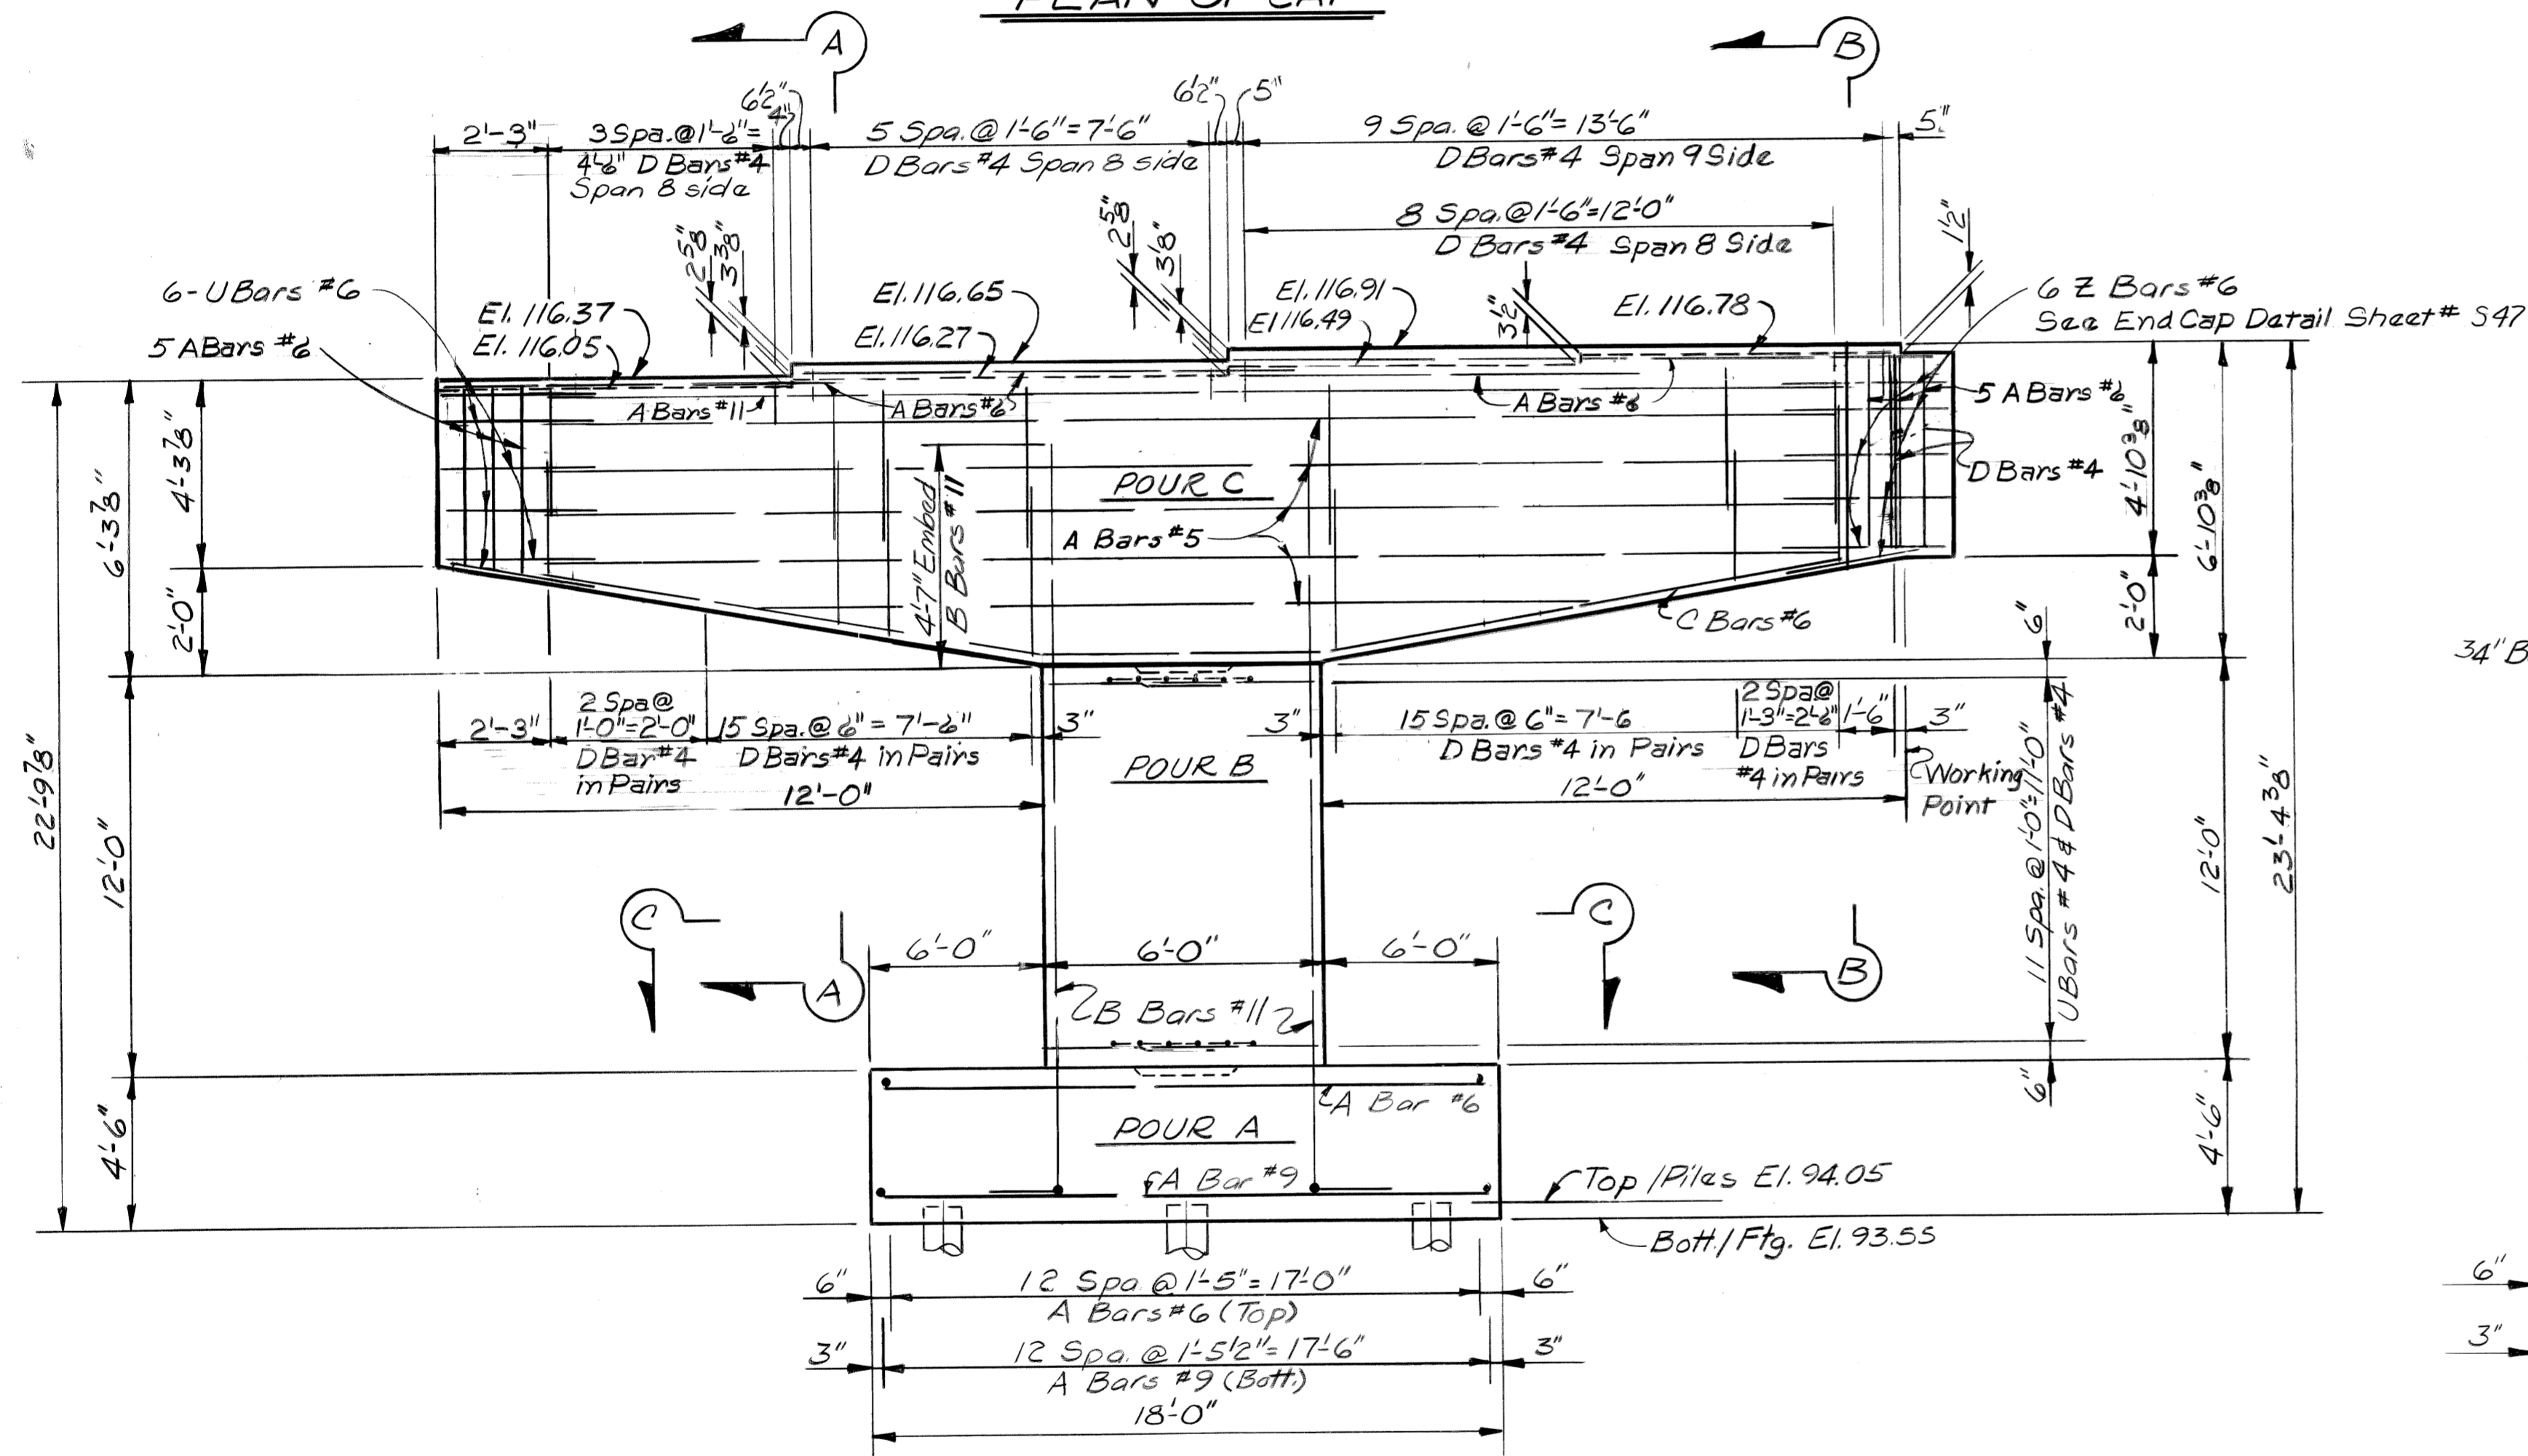 PLAN OF CAP
A
B
6½"
4"
6½"
5"
2'-3"
3 Spa.@1'-6"=
4'-6" D Bars #4
Span 8 side
5 Spa.@ 1'-6"=7'-6"
D Bars #4 Span 8 side
9 Spa.@ 1'-6"= 13'-6"
D Bars #4 Span 9 Side
5"
8 Spa.@1'-6"=12'-0"
D Bars #4 Span 8 Side
2⅝"
3⅜"
2⅝"
3⅛"
3½"
½"
6-U Bars #6
5 A Bars #6
El. 116.37
El. 116.05
El. 116.65
El. 116.27
El. 116.91
El 116.49
El. 116.78
6 Z Bars #6
See End Cap Detail Sheet # S47
A Bars #11
A Bars #6
A Bars #6
5 A Bars #6
D Bars #4
POUR C
A Bars #5
4'-7" Embed
B Bars #11
C Bars #6
4'-3⅞"
6'-3⅞"
2'-0"
4'-10⅜"
6'-10⅜"
2'-0"
6"
34" B
2'-3"
2 Spa@
1'-0"=2'-0"
D Bar #4
in Pairs
15 Spa.@ 6" = 7'-6"
D Bars #4 in Pairs
3"
12'-0"
POUR B
3"
15 Spa.@ 6"= 7'-6
D Bars #4 in Pairs
2 Spa@
1'-3"=2'-6"
D Bars
#4 in Pairs
1'-6"
3"
12'-0"
Working
Point
22'-9⅞"
12'-0"
11 Spa.@ 1'-0"=11'-0"
U Bars #4 & D Bars #4
12'-0"
23'-4⅜"
C
C
6'-0"
6'-0"
6'-0"
A
B
B Bars #11
A Bar #6
6"
POUR A
4'-6"
4'-6"
A Bar #9
Top/Piles El. 94.05
Bott./Ftg. El. 93.55
6"
12 Spa @ 1'-5"= 17'-0"
A Bars #6 (Top)
6"
6"
3"
12 Spa. @ 1'-5½"= 17'-6"
A Bars #9 (Bott.)
3"
3"
18'-0"